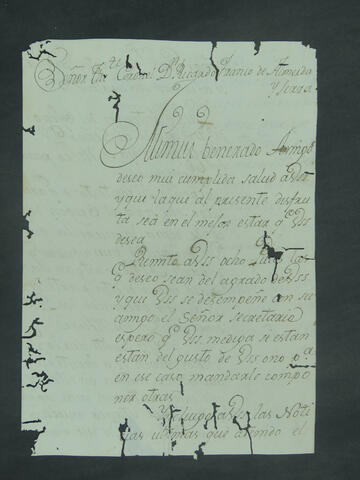 Señor Thte. Coronel Dn. Ricardo Franco de Almeida
y Serra
Mi mui benerado Amigo
deseo mui cumplida salud a Vss
y que la que al presente disfru
ta sea en el mejor estar q Vss
desea
Remito a Vss ocho
q deseo sean del agrado de Vss
y que Vss se desempeñe con su
amigo el Señor secretario
espero q Vss me diga si estan
estan del gusto de Vss o no pa
en ese caso mandarle compo
ner otras
Vss las Noti
ultimas que el